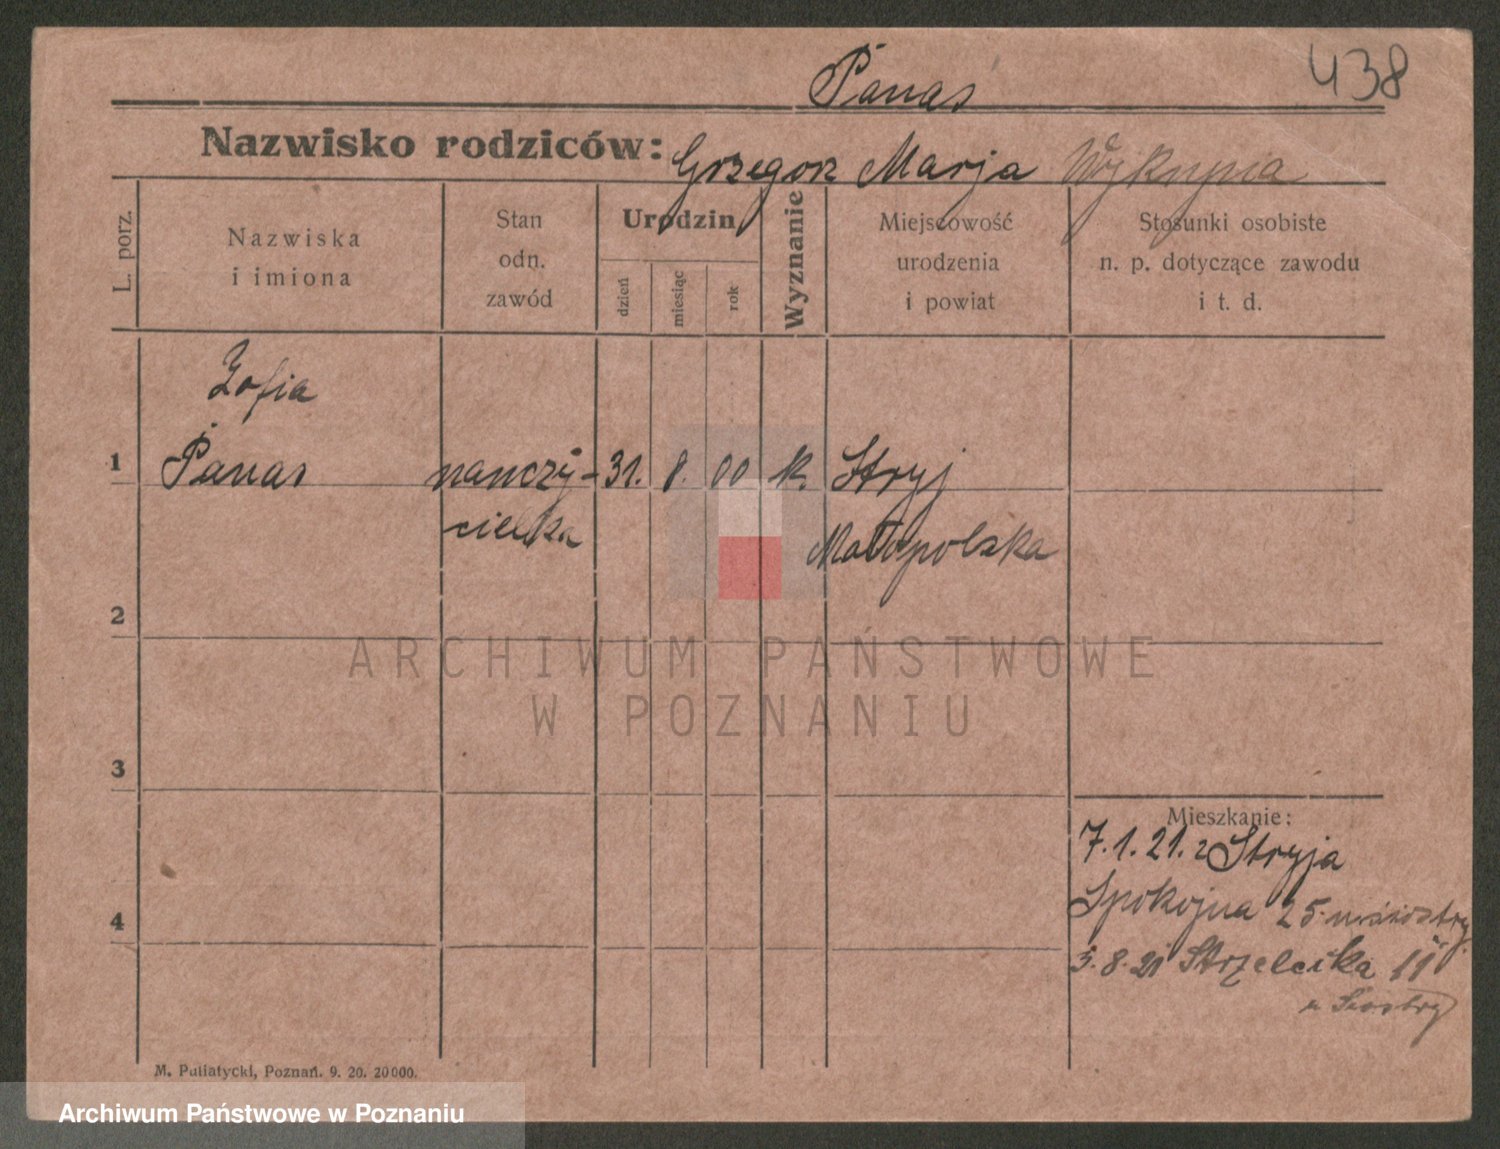 Panas
438
Nazwisko rodziców: Grzegorz Marja
L. porz.
Nazwiska
i imiona
Stan
odn.
zawód
Urodzin
dzień
miesiąc
rok
Wyznanie
Miejscowość
urodzenia
i powiat
Stosunki osobiste
n. p. dotyczące zawodu
i t. d.
Zofia
1 Panas nauczy- 31. 8. 00 k. Stryj
cielka Małopolska
2
3
Mieszkanie:
7.1.21. z Stryja
Spokojna 25. u siostry
4
3.8.21 Strzelecka 11
u Siostry
M. Putiatycki, Poznań. 9. 20. 20000.
ARCHIWUM PAŃSTWOWE
W POZNANIU
Archiwum Państwowe w Poznaniu